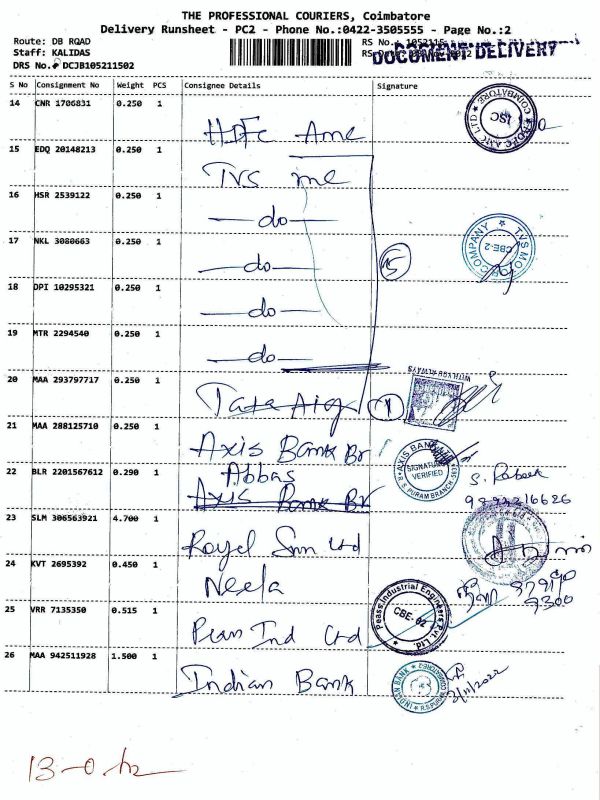 THE PROFESSIONAL COURIERS, Coimbatore
Delivery Runsheet - PC2 - Phone No.:0422-3505555 - Page No.:2
Route: DB RQAD
Staff: KALIDAS
DRS No.# DCJB105211502
RS No.: 1052115
DOCUMENT DELIVERY
S No Consignment No Weight PCS Consignee Details Signature
14 CNR 1706831 0.250 1 HDFC Amc
HDFC AMC LTD COIMBATORE ISC
15 EDQ 20148213 0.250 1 TVS me
16 HSR 2539122 0.250 1 —do—
17 NKL 3080663 0.250 1 —do— 5
TVS MO COMPANY CBE-2
18 DPI 10295321 0.250 1 —do—
19 MTR 2294540 0.250 1 —do—
20 MAA 293797717 0.250 1 Tata Aig 1
WITH YOU ALWAYS
21 MAA 288125710 0.250 1 Axis Bank Br
AXIS BANK SIGNATURE VERIFIED R.S. PURAM BRANCH
22 BLR 2201567612 0.290 1 Abbas
Axis Bank Br
23 SLM 306563921 4.700 1 Royal Sun Ltd
24 KVT 2695392 0.450 1 Neela
25 VRR 7135350 0.515 1 Peass Ind Ltd
Peass Industrial Engineers Pvt. Ltd. CBE-02
26 MAA 942511928 1.500 1 Indian Bank
INDIAN BANK R.S.PURAM COIMBATORE
2/11/2022